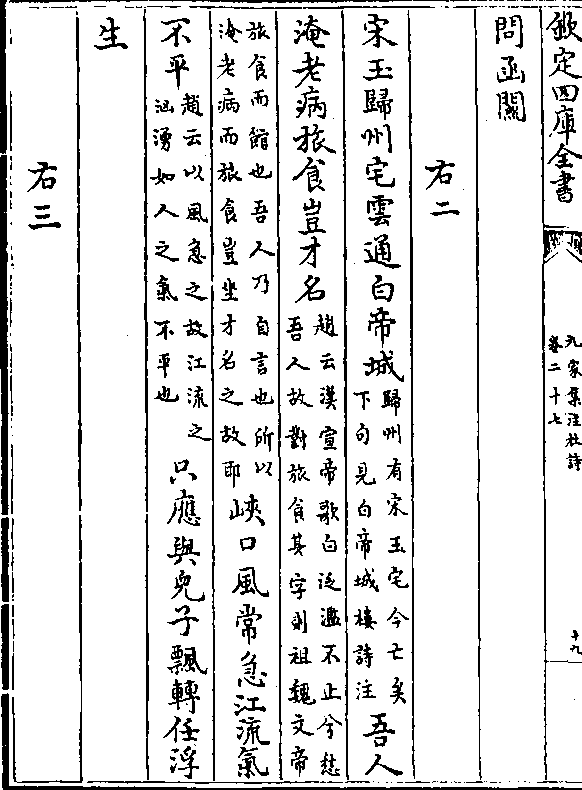 欽定四庫全書
九家集注杜詩
卷二十七
十九
問函關
右二
宋玉歸州宅雲通白帝城
歸州有宋玉宅今亡矣
下句見白帝城樓詩注
吾人
淹老病旅食豈才名
趙云漢宣帝歌白泛濫不止兮愁
吾人故對旅食其字則祖魏文帝
旅食而館也吾人乃自言也所以
淹老病而旅食豈坐才名之故耶
峽口風常急江流氣
不平
趙云以風急之故江流之
洶湧如人之氣不平也
只應與兒子飄轉任浮
生
右三